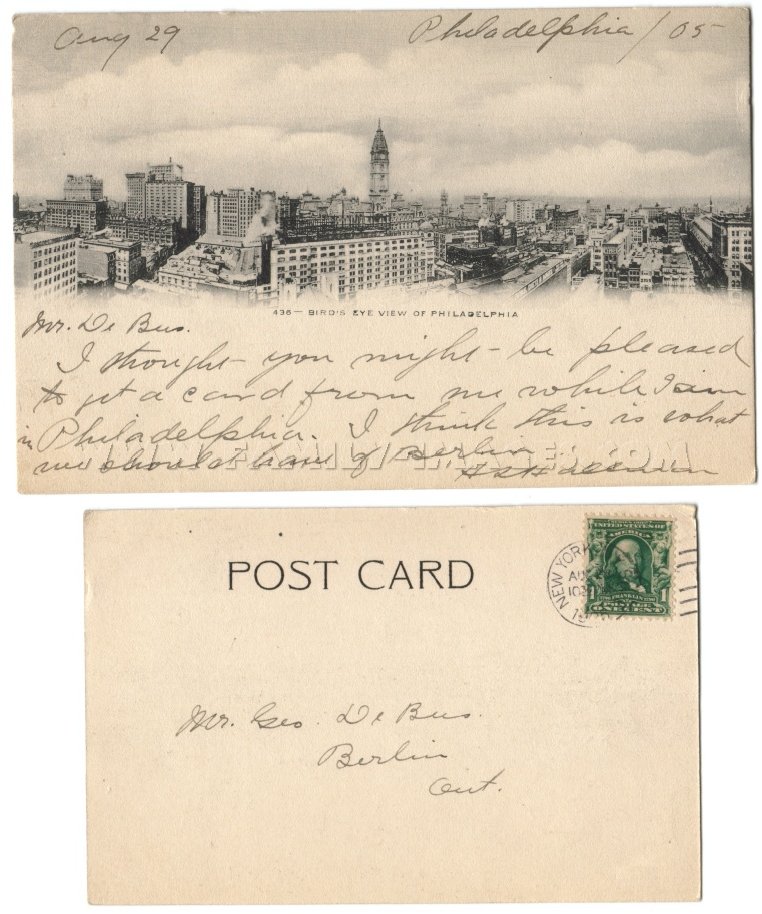 Aug 29 Philadelphia / 05
436 — BIRD'S EYE VIEW OF PHILADELPHIA
Mr. De Bus.
I thought you might be pleased
to get a card from me while I am
in Philadelphia. I think this is what
we should have of Berlin
POST CARD
NEW YORK
UNITED STATES OF
AMERICA
1 FRANKLIN 1
POSTAGE
ONE CENT
Mr. Geo. De Bus.
Berlin
Ont.